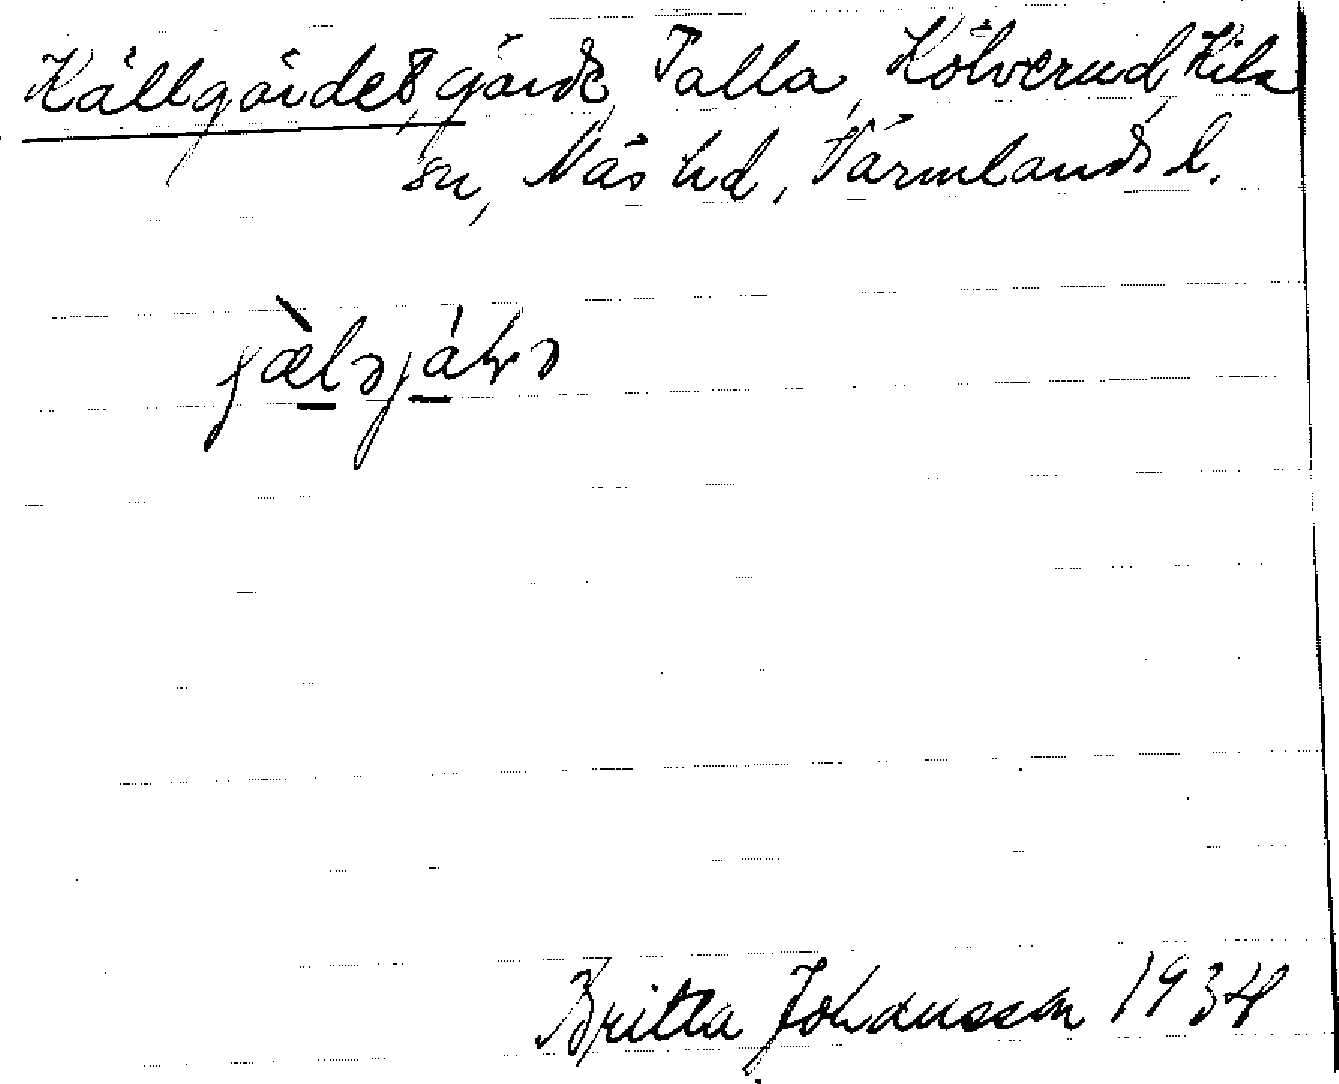 Källgärdet, gärde, Talla, Kölverud, Kila
sn, Näs hd, Värmlands l.
Britta Johansson 1934